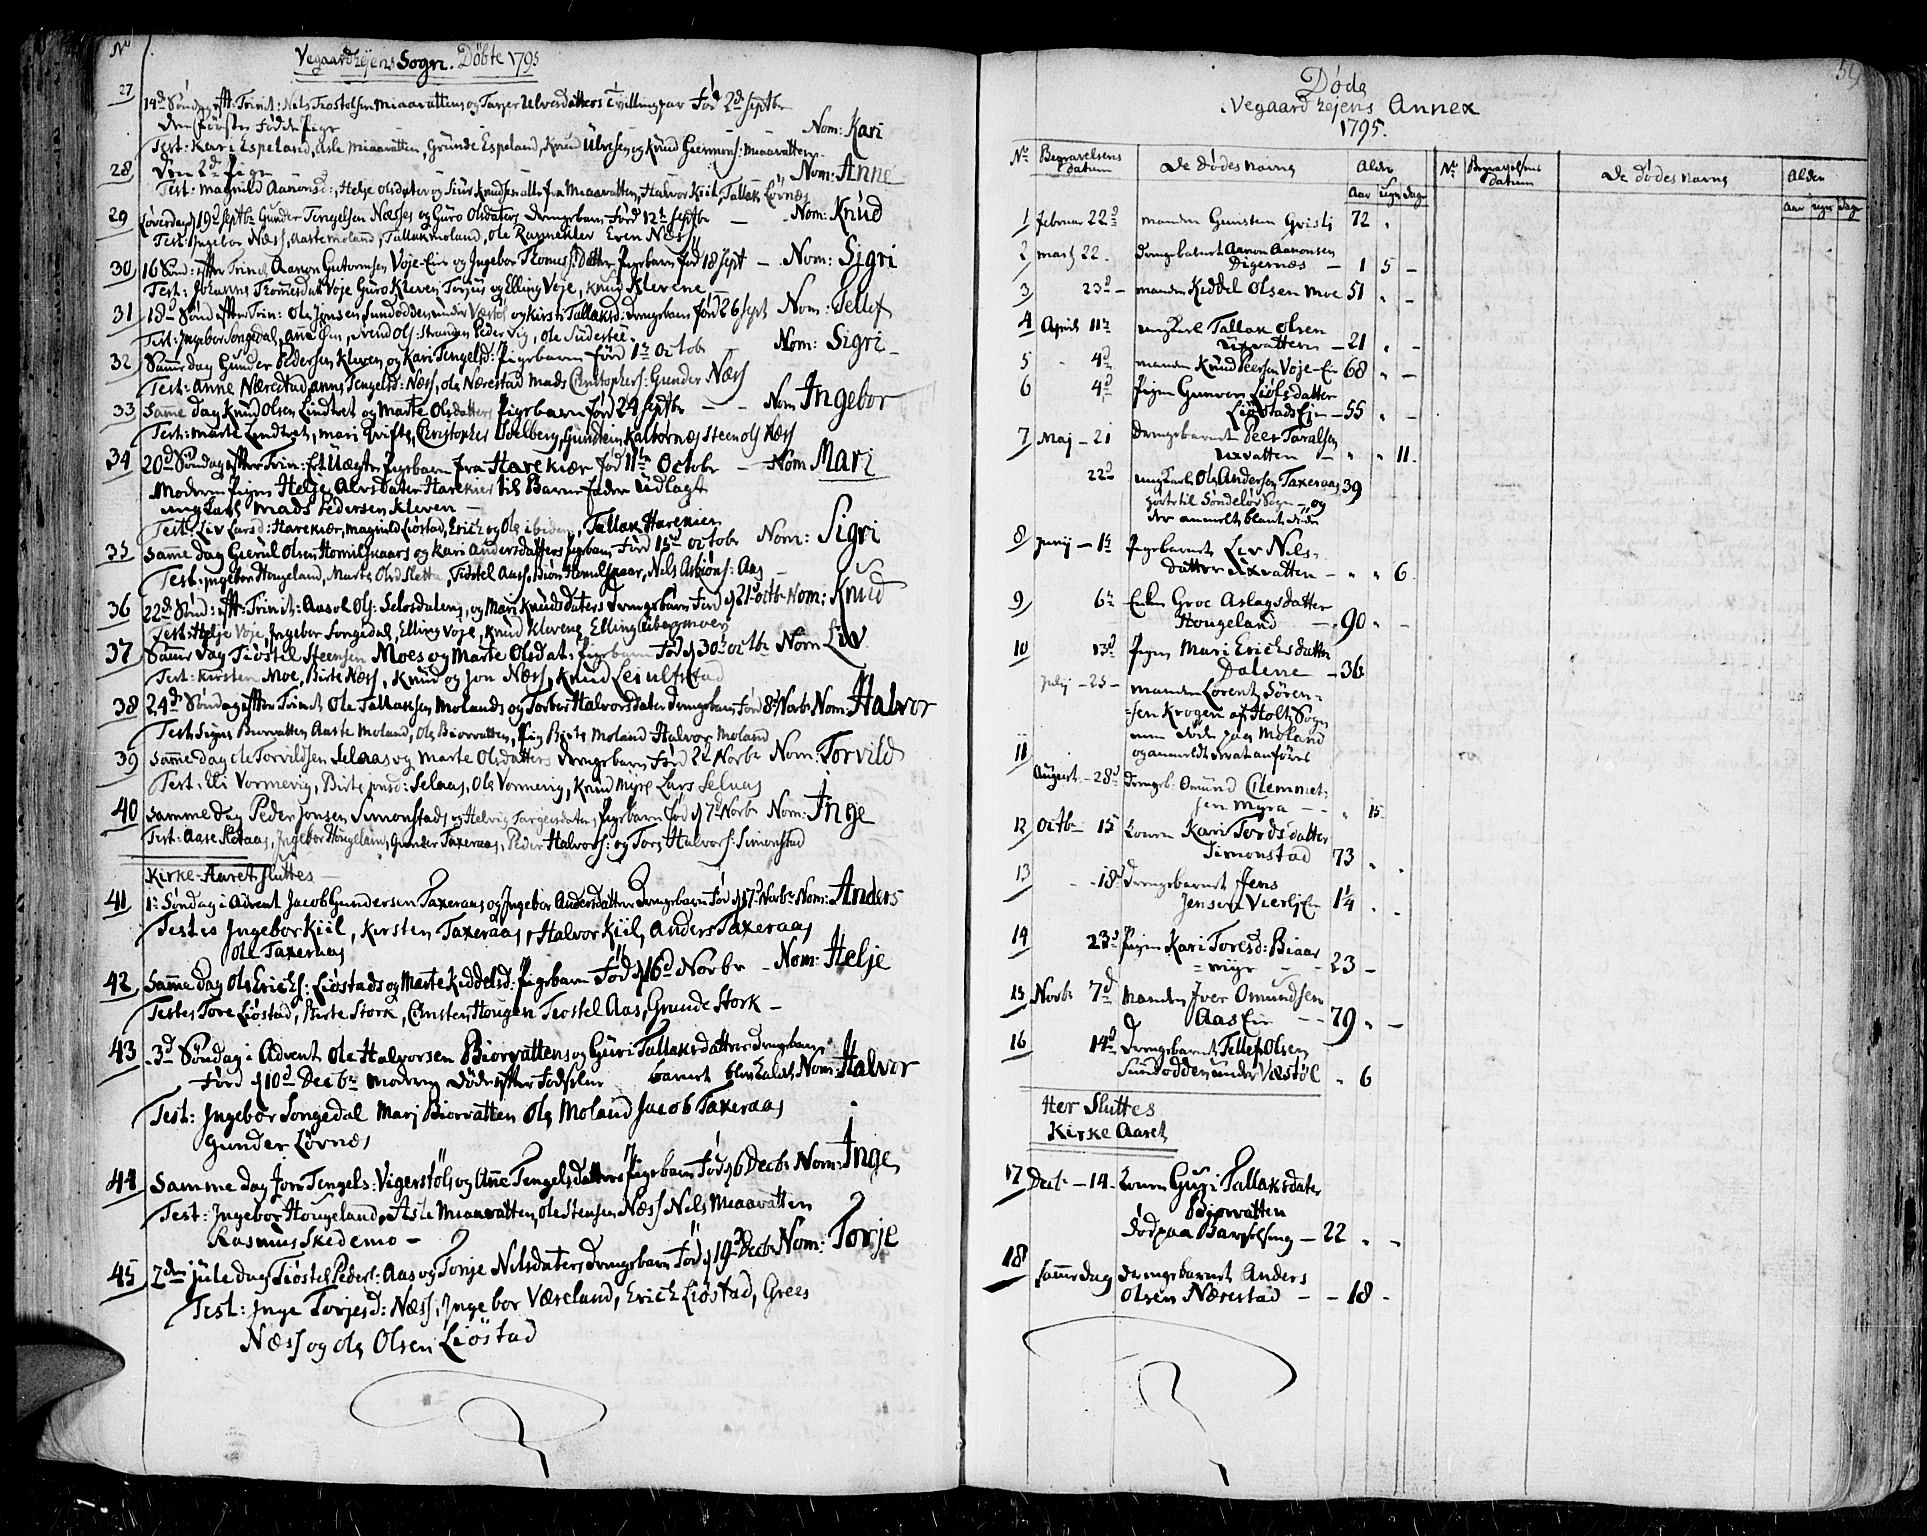 No
Vegaardzejens Sogn. Døbte 1795
27 14d Søndag efft: Trinit: Nels Tiostolsen Miaavattens og Tarjer Ulvesdatters Tvillingpar Fød 2d Septbr
den første Fødde Pige Nom: Kari
Test: Kari Espeland, Asle Miaavatten, Grunde Espeland, Knud Ulvesen og Knud Giermuns: Miaavatten
28 Den 2d Pige Nom: Anne
Test: Magnild Aanonsd:, Helje Olsdater og Siur Knudsen alle fra Miaavatten, Halvor Kiil, Tallak Løvnæs
29 Løverdag d 19d Septbr Gunder Tengelsen Næsses og Guro Olsdaters Drengebarn Fød 12te Septbr — Nom: Knud
Test: Ingebor Næss, Aaste Moland, Tallak Moland, Ole Rannekler Even Næss
30 16 Sønd: effter Trinit: Aanon Gutormsen Voje-Eie og Ingebor Thomes: Datter Pigebarn Fød 18 Sept — Nom: Sigri
Test: Johanns Thommesdat: Voje Guro Kleven Torjus og Elling Voje, Knud Klevene
31 18d Sønd: effter Trin: Ole Jensen Sundodden under Væstøl og Kirsti Tallaksd: Drengebarn Fød 26 Sept Nom: Tellef
Test: Ingebor Songedal, Anne Øen, Svend Ols: Strangen Peder Vig, Ole Sudestøe
32 Samme dag Gunder Pedersen Kleven og Kari Tengelsd: Pigebarn Fød 1te Octob — Nom: Sigri
Test: Anne Nærestad, Anne Tengelsd: Næss, Ole Nærestad Mads Christophers: Gunder Næss
33 Samme dag Knud Olsen Lindtvet og Marte Olsdatters Pigebarn Fød 24 Septbr — — Nom Ingebor
Test: Marte Lindtvet, Mari Gvifte, Christopher Solberg, Gundstein Kaltornæs Steen Ols Næss
34 20d Søndag effter Trin: Et Uægte Pigebarn fra Harekiær Fød 11te Octobr — Nom Mari
Moderen Pigen Helje Alvsdater Harekier til Barnefader Udlagt
ungkarl Mads Pedersen Kleven —
Test: Liv Larsd: Harekiær, Magnild Liøstad, Erich og Ole ibidem, Tallak Harekier
35 Samme dag Gierul Olsen Homilskaars og Kari Andersdatters Pigebarn Fød 15d Octobr Nom: Sigri
Test: Ingebor Hougeland, Marte Olsd Sletta, Tiostel Aass, Biøn Homilskaar, Nels Asbiøns: Aas —
36 22d Sønd: efft: Trinit: Aasol Ols: Selosdalens, og Mari Knudsdaters Drengebarn Fød d 21de Octbr Nom: Knud
Test: Helje Voje, Ingebor Songedal, Elling Voje, Knud Klevene, Elling Aibergsmoen
37 Samme dag Tiøstel Steensen Moes og Marte Olsdat: Pigebarn Fød d 30te Octbr Nom Liv
Test: Kirsten Moe, Birte Næss, Knud og Jon Næss, Knud Leiulfstad
38 24d Søndag effter Trinit Ole Tallaksen Molands og Torber Halvorsdater Drengebarn Fød 8d Novbr Nom: Halvor
Test Signe Biorvatten Aaste Moland, Ole Biorvatten, Pig Birte Moland Halvor Moland
39 Samme dag Ole Torvildsen Selaas og Marte Olsdatters Drengebarn Fød 2d Novbr Nom: Torvild
Test: Eli Vormevig, Birte Jonsd: Selaas, Ole Vormevig, Knud Myre Lars Selaas
40 Samme dag Peder Jonsen Simonstads og Helvig Targersdaters Pigebarn Fød d 7d Novbr Nom: Inge
Test: Aase Sletaas, Ingebor Hougeland, Gunder Taxeraas, Peder Halvors: og Tore Halvors: Simonstad
Kirke-Aaret Sluttes —
41 1te Søndag i Advent Jacob Gundersen Taxeraas og Ingebor Andersdatter Drengebarn Fød d 17d Novbr Nom: Anders
Testes Ingebor Kiil, Kirsten Taxeraas, Halvor Kiil, Anders Taxeraas
Ole Taxeraas
42 Samme dag Ole Erichs: Liøstads og Marte Kiddelsd: Pigebarn Fød d 16d Novbr — Nom: Helje
Testes Tore Liøstad, Birte Stork, Christen Hougen Tiostel Aas, Grunde Stork —
43 3d Søndag i Advent Ole Halvorsen Biorvattens og Guri Tallaksdatters Drengebarn
Fød d 10d Decbr Moderen Døde effter Fødselen barnet blev kaldet Nom: Halvor
Test: Ingebor Songedal Mari Biorvatten Ole Moland Jacob Taxeraas
Gunder Løvnæs
44 Samme dag Jon Tengels: Vigerstøls og Anne Tengelsdatters Pigebarn Fød d 6 Decbr Nom: Inge
Test: Ingebor Hougeland, Asle Miaavatten, Ole Stensen Næss Nels Miaavatten
Rasmus Skedemo —
45 2den juledag Tiøstel Peders: Aas og Tonje Nelsdaters Drengebarn Fød d 19d Decbr Nom: Torje
Test: Inge Torjesd: Næss, Ingebor Væreland, Erich Liøstad, Grees
Næss og Ole Olsen Liøstad
59
Døde
Vegaardzejens Annex
1795.
No Begravelsens datum De Dødes navne Alder
Aar Uger dage
No Begravelsens datum De Dødes navne Alder
Aar uger dage
1 Februar 22d manden Gunsten Gvisli 72 „
2 marts 22. Drengebarnet Aanon Aanonsen
Digernæs — 1 5 —
3 23d — manden Kiddel Olsen Moe 51 „ —
4 April 11te ungkarl Tallak Olsen
Uxvatten — 21 „ —
5 4d manden Knud Peersen Voje-Eie 68 „ —
6 4d Pigen Gunvor Liølsdatter
Liøstads Eje — 55 „ —
7 Maj — 21 Drengebarnet Peer Taralsen
Uxvatten — „ „ 11.
22d ungkarl Ole Anderson Taxeraas 39
hørte til Søndeløv Sogn — og
der anmeldt blant døde
8 Junij — 1te Pigebarnet Liv Nels-
datter Uxvatten — „ „ 6.
9 6te Enken Groe Aslagsdatter
Hougeland — 90 „ —
10 13d Pigen Mari Erichsdatter
Dalene — 36
Julij — 25 — manden Lorents Søren-
sen Krogen af Holt Sogn
men døde paa Moland
og anmeldt der at anføres
11 August — 28d Drengeb: Omund Clemmet-
sen Myra — — „ 15.
12 Octbr 15 Konen Kari Tordsdatter
Simonstad 73 „ .
13 — 18d Drengebarnet Jens
Jensen Vierlj Eie 1¼ . —
14 23d Pigen Kari Toresd: Biaar
= myr — — 23 —
15 Novbr 7d Manden Iver Omundsen
Aas Eie — — 79 „ —
16 14d Drengebarnet Tellef Olsen
Sundodden under Væstøl „ 6
Her Sluttes
Kirke Aaret
17 Decbr — 14. Konen Guri Tallaksdater
Biørvatten
død paa Barselseng — 22 „ „
18 Samme dag drengebarnet Anders
Olsen Nærestad — — 18 —